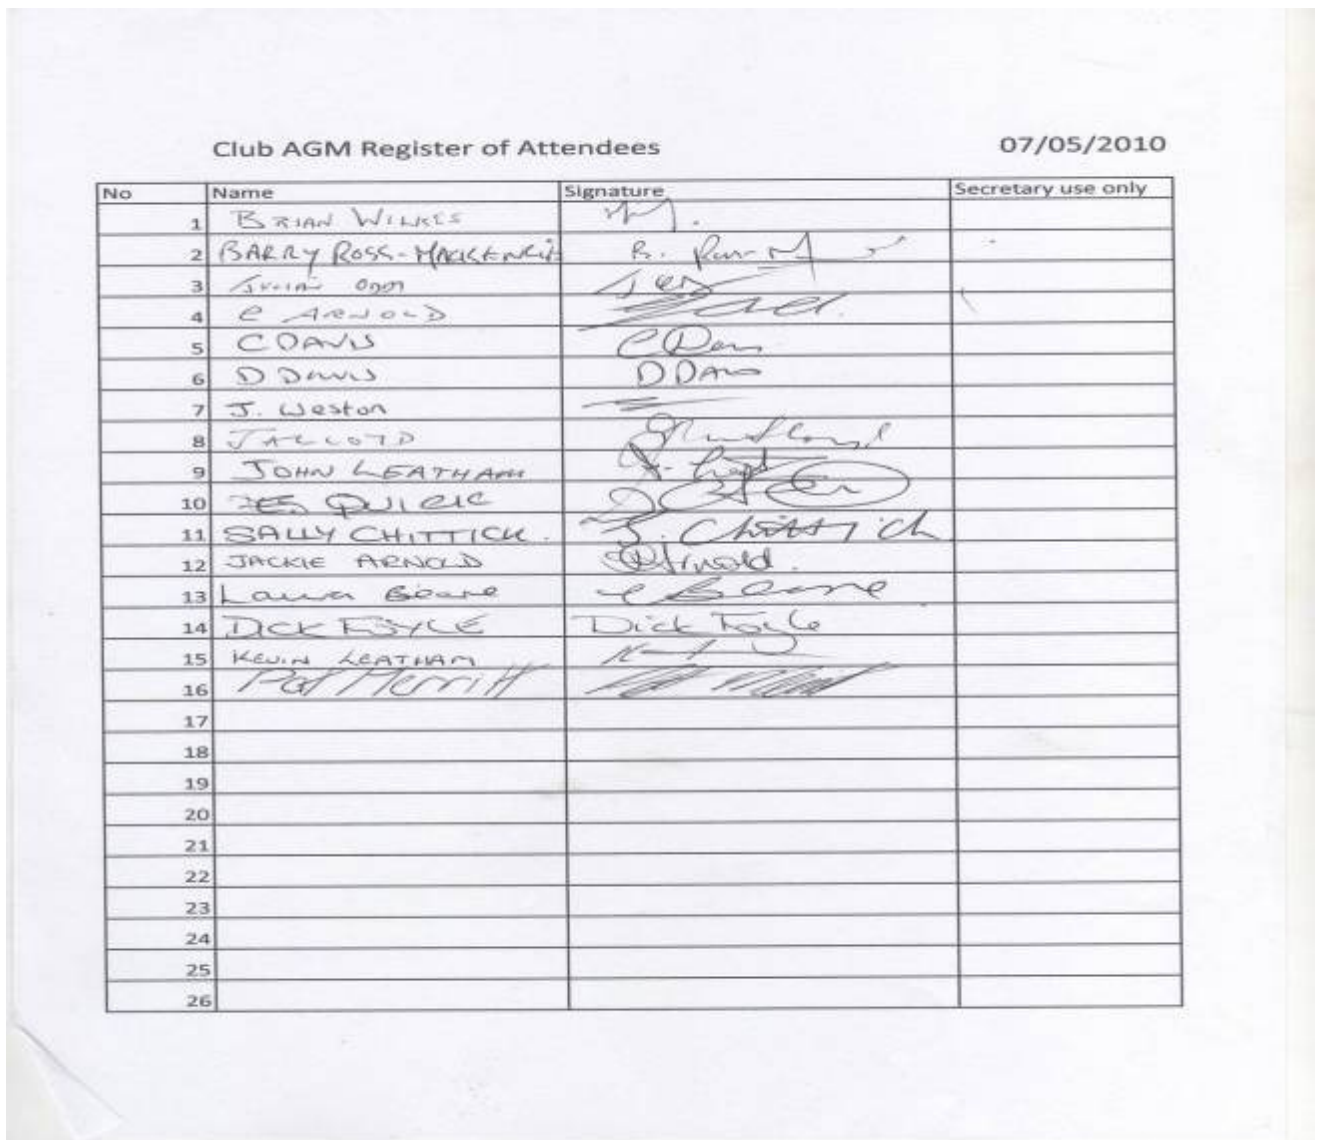 Club AGM Register of Attendees 07/05/2010
No Name Signature Secretary use only
1 BRIAN WILKES
2 BARRY ROSS-MACKENZIE B.
3
4 C ARNOLD
5 C DAVIS C Davis
6 D DAVIS D Davis
7 J. Weston
8 J A LLOYD
9 JOHN LEATHAM
10 QUICK
11 SALLY CHITTICK. S. Chittick
12 JACKIE ARNOLD Arnold.
13 Laura Beare Beare
14 DICK FOYLE Dick Foyle
15 KEVIN LEATHAM
16 Pat Merritt
17
18
19
20
21
22
23
24
25
26